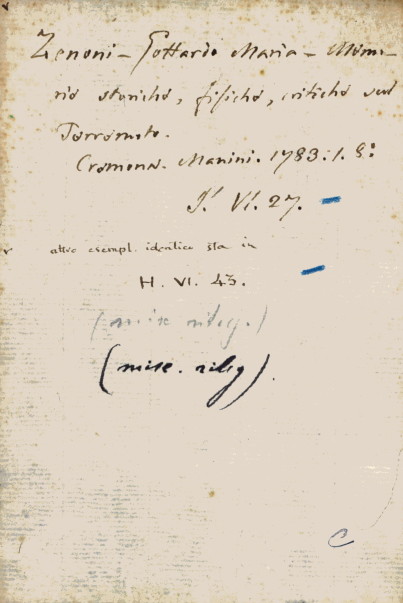 Zenoni - Gottardo Maria - Memo-
rie storiche, fisiche, critiche sul
Terremoto.
Cremona. Manini. 1783. 1. 8:
J. VI. 27.
altro esempl. identico sta in
H. VI. 43.
(misc. rileg.)
(misc. rileg).
C